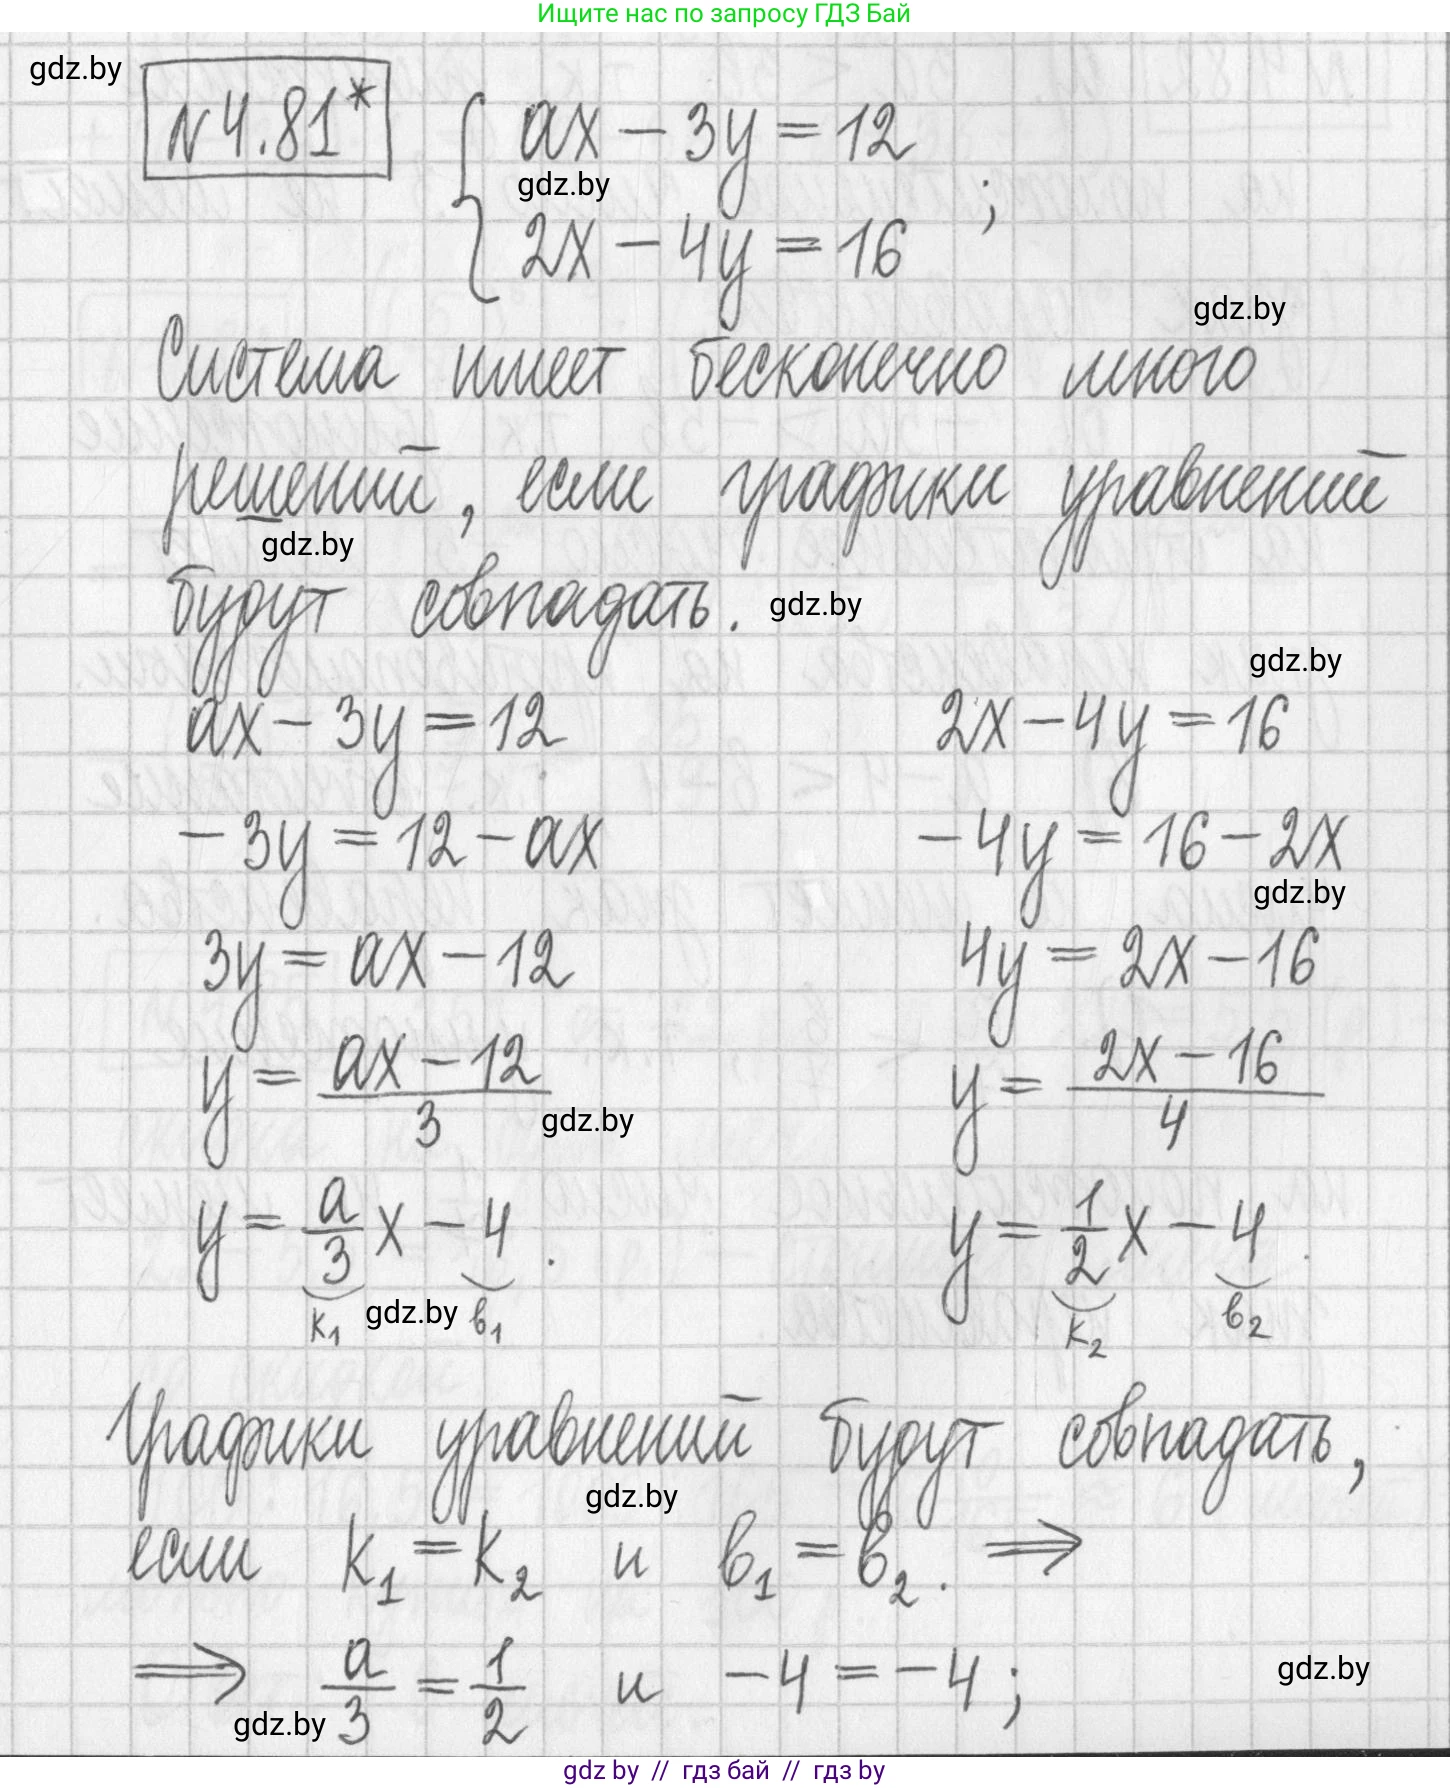 Ищите нас по запросу ГДЗ Бай
gdz.by
№4.81*
{ ax - 3y = 12
gdz.by
2x - 4y = 16 ;
gdz.by
Система имеет бесконечно много
решений, если графики уравнений
gdz.by
будут совпадать.
gdz.by
gdz.by
ax - 3y = 12 2x - 4y = 16
-3y = 12 - ax -4y = 16 - 2x
gdz.by
3y = ax - 12 4y = 2x - 16
y = (ax - 12)/3 y = (2x - 16)/4
gdz.by
y = a/3 x - 4. y = 1/2 x - 4.
k₁ gdz.by в₁ k₂ в₂
Графики уравнений будут совпадать,
gdz.by
если k₁ = k₂ и в₁ = в₂. ⇒
⇒ a/3 = 1/2 и -4 = -4;
gdz.by
gdz.by
gdz by // гдз бай // гдз by